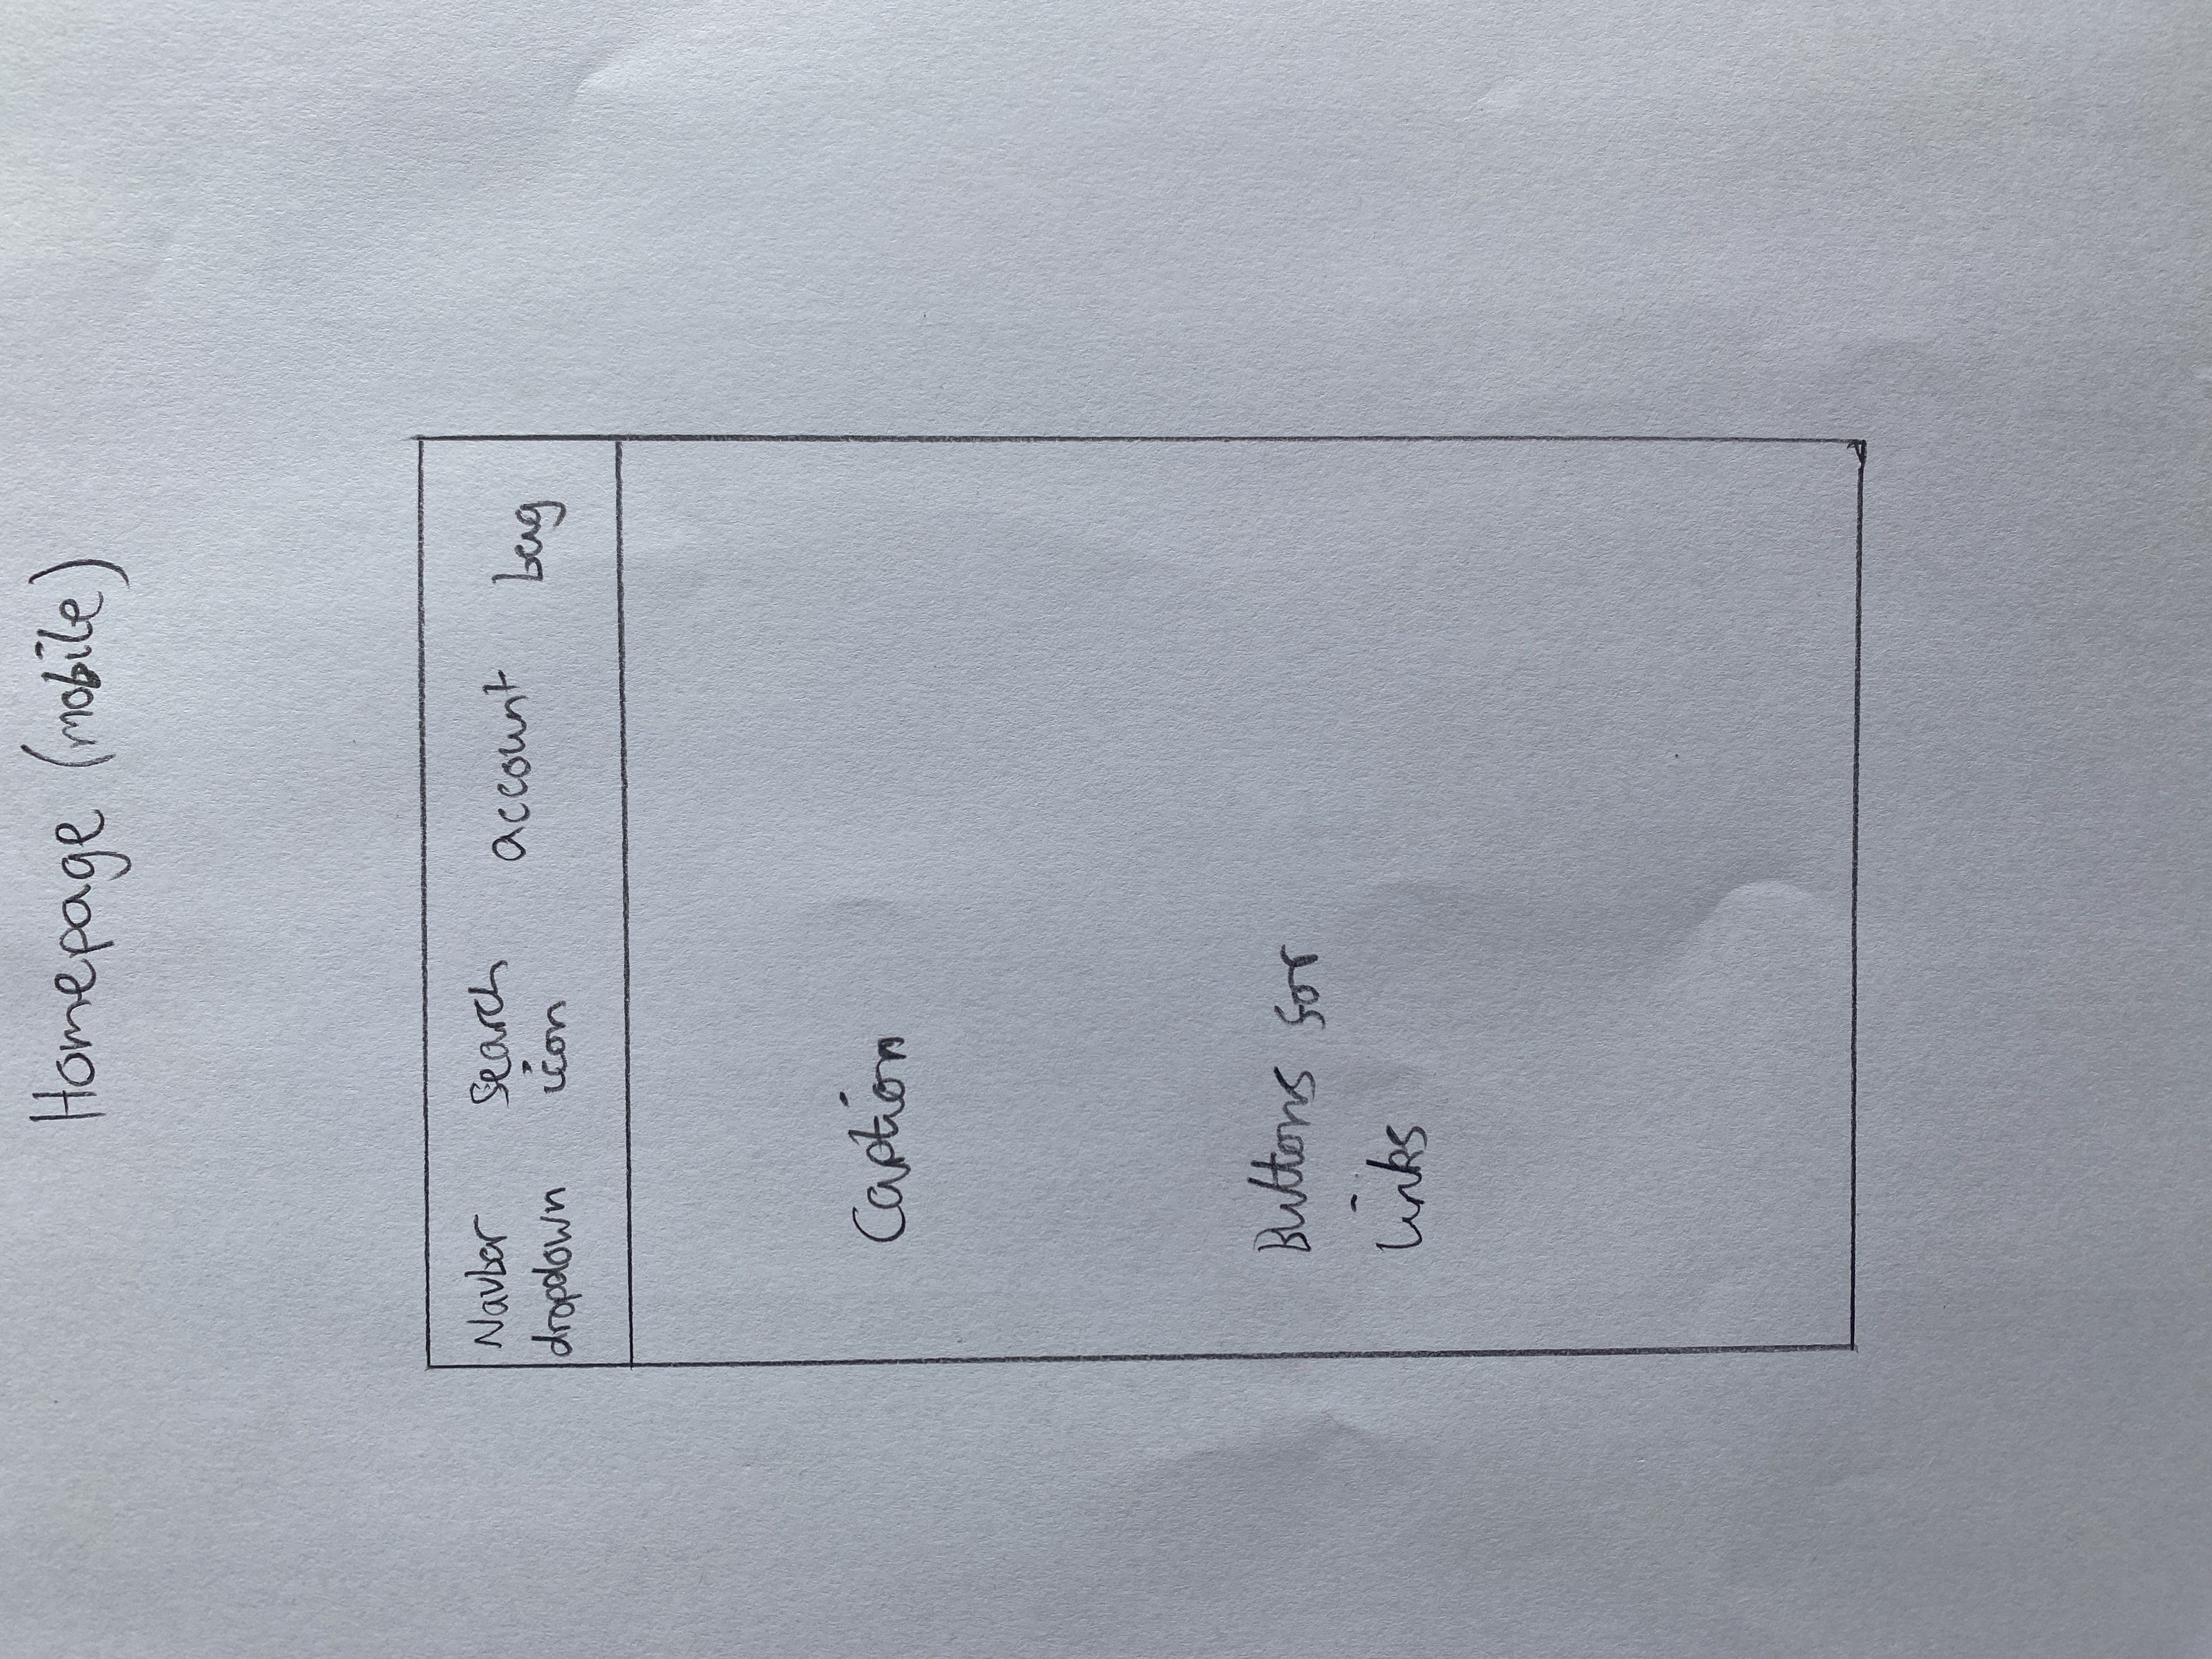 Homepage (mobile)
Navbar dropdown
search icon
account
bag
Caption
Buttons for
links